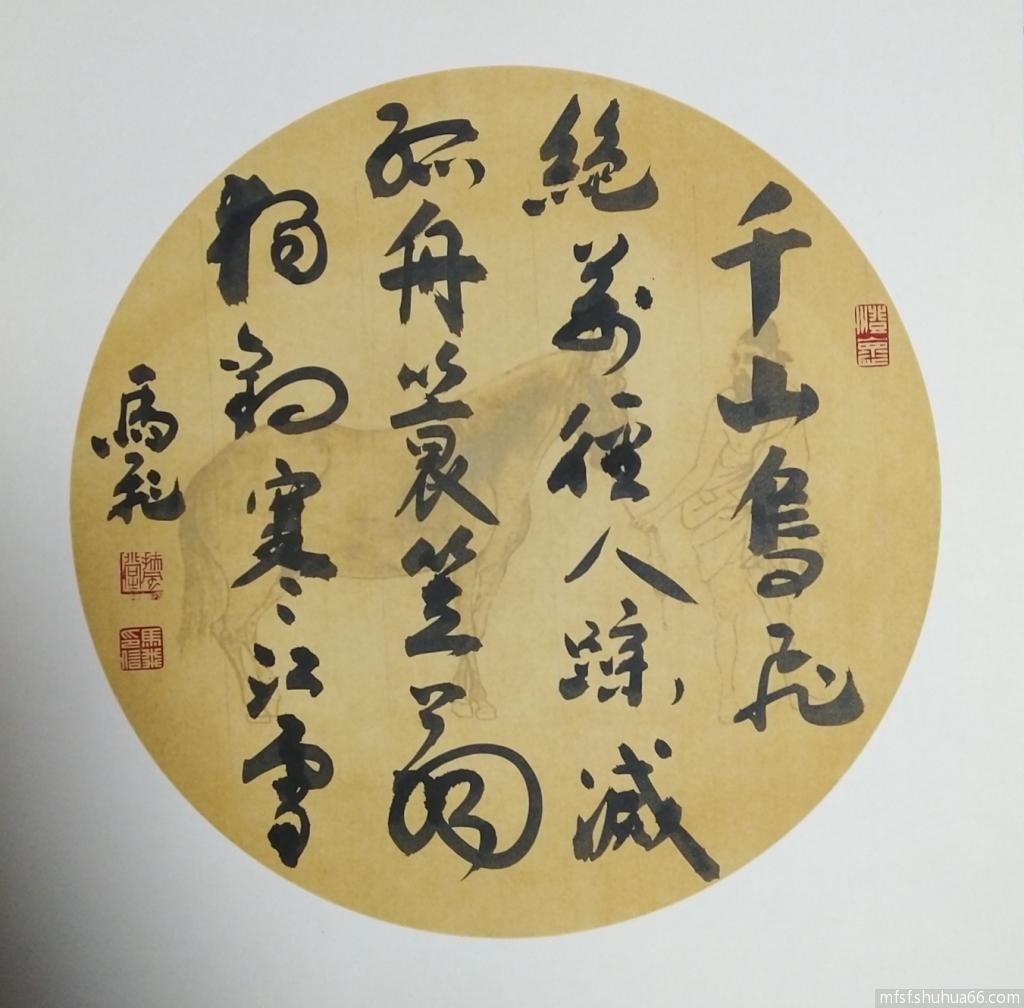 千山鳥飛
絶萬徑人踪滅
孤舟簑笠翁
獨釣寒江雪
馬飛
馬飛印信
mfsf.shuhua66.com